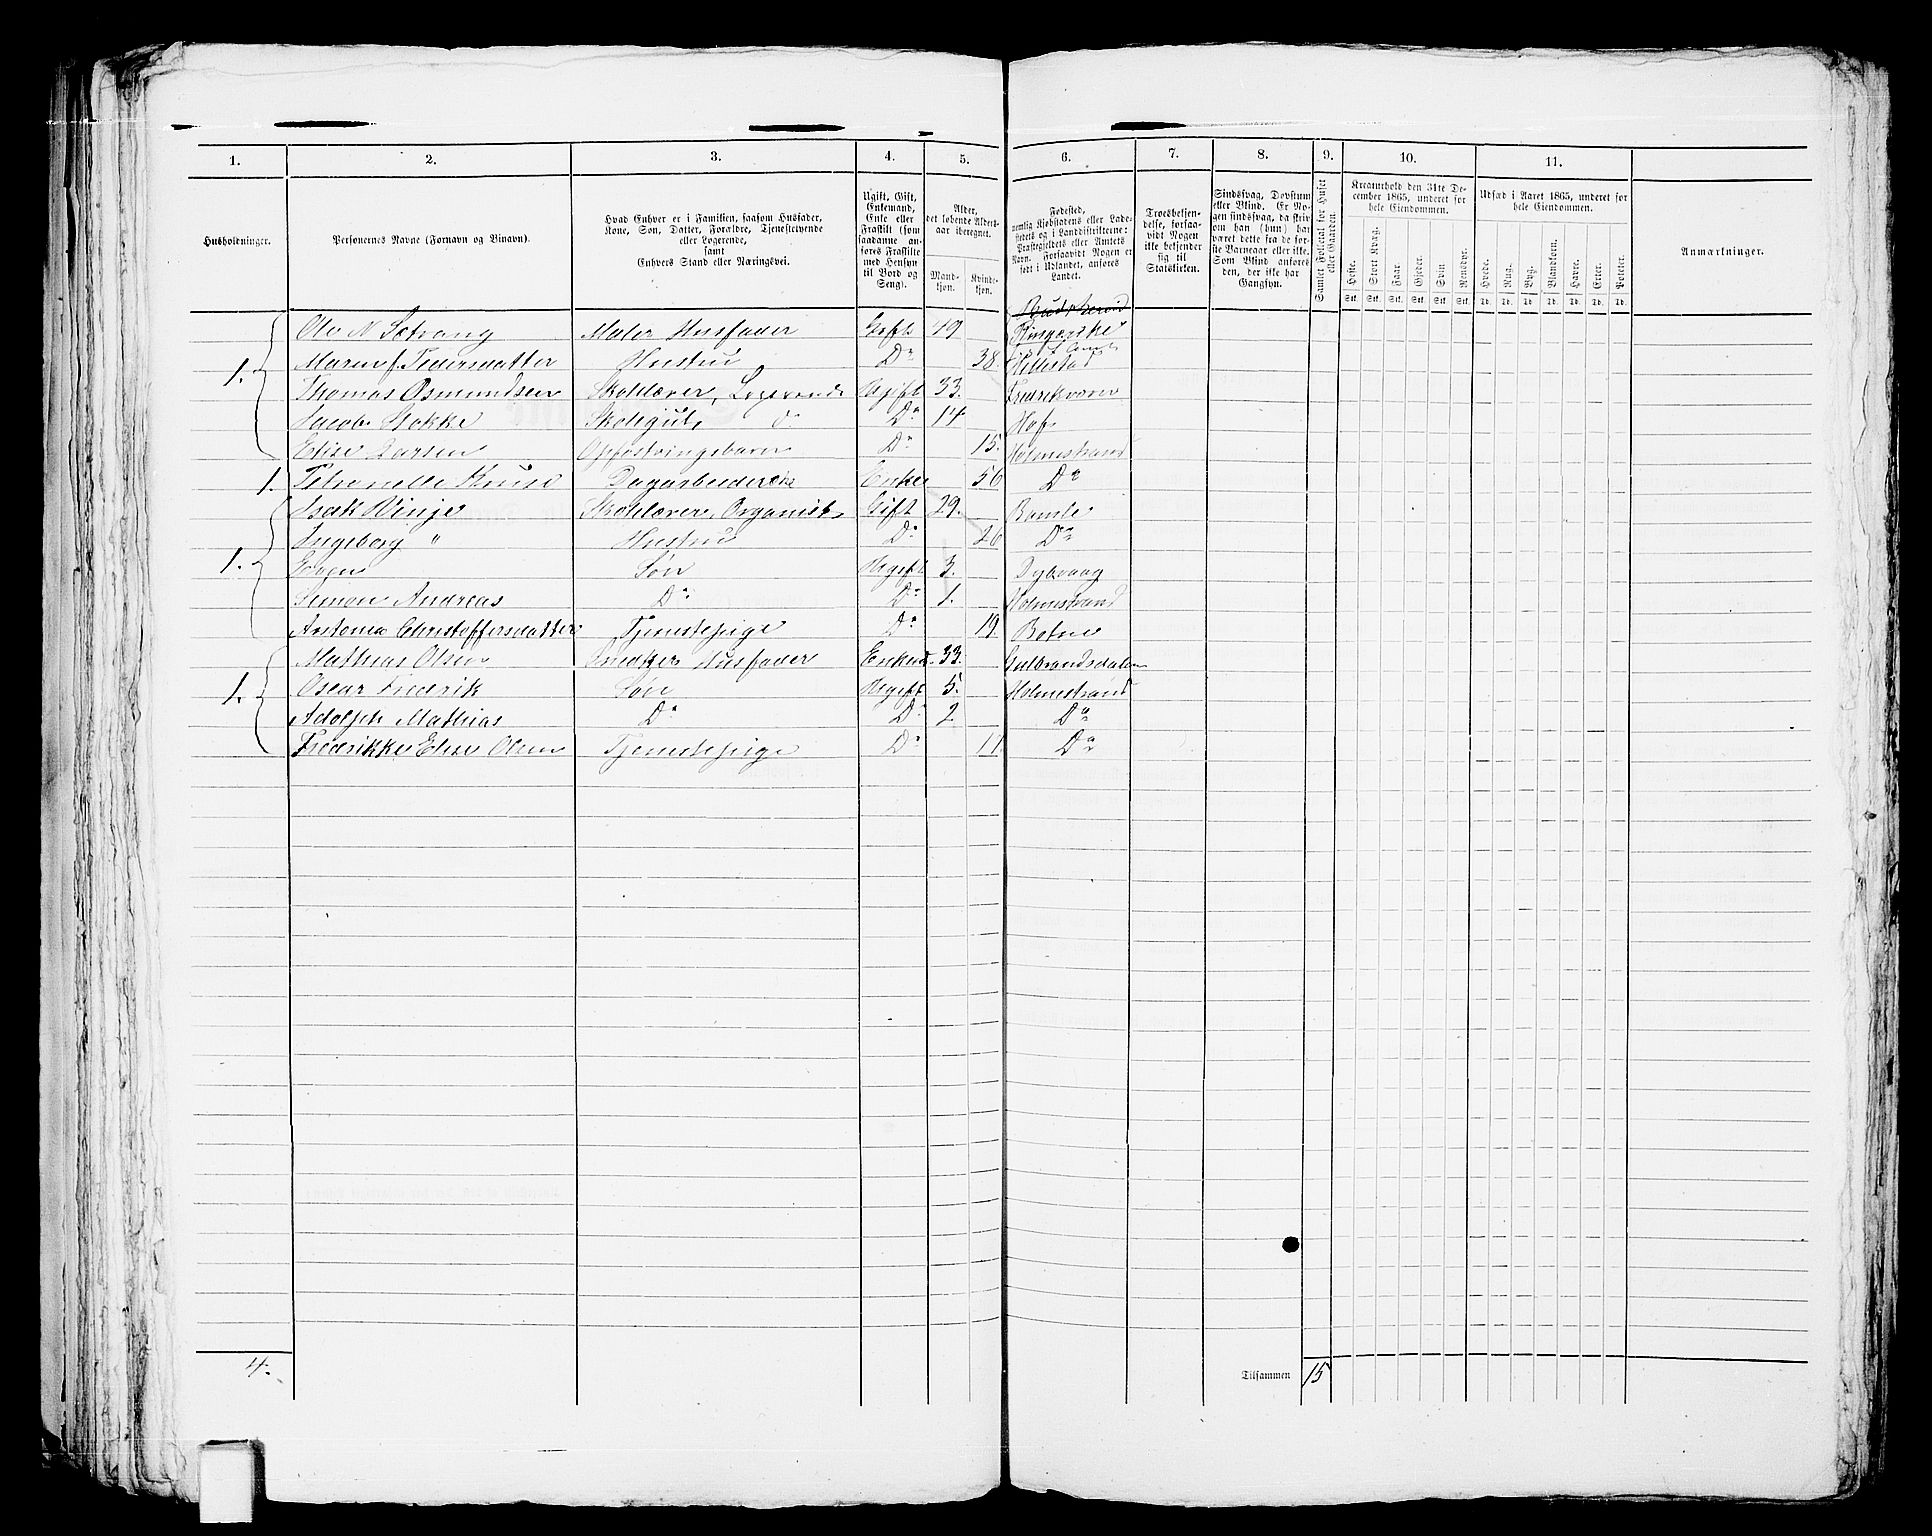 1. 2. 3. 4. 5. 6. 7. 8. 9. 10. 11.
Husholdninger.
Personernes Navne (Fornavn og Binavn).
Hvad Enhver er i Familien, saasom Husfader,
Kone, Søn, Datter, Forældre, Tjenestetyende
eller Logerende,
samt
Enhvers Stand eller Næringsvei.
Ugift, Gift,
Enkemand,
Enke eller
Fraskilt (som
saadanne an-
føres Fraskilte
med Hensyn
til Bord og
Seng).
Alder,
det løbende Alders-
aar iberegnet.
Mand-
kjøn.
Kvinde-
kjøn.
Fødested,
nemlig Kjøbstadens eller Lade-
stedets og i Landdistrikterne:
Præstegjeldets eller Amtets
Navn. Forsaavidt Nogen er
født i Udlandet, anføres
Landet.
Troesbekjen-
delse, forsaa-
vidt Nogen
ikke bekjender
sig til
Statskirken.
Sindssvag, Døvstum
eller Blind. Er No-
gen sindssvag, da skriv
om han (hun) har
været dette fra de før-
ste Barneaar eller ikke.
Som Blind anføres
den, der ikke har
Gangsyn.
Samlet Folketal for Huset
eller Gaarden.
Kreaturhold den 31te De-
cember 1865, underet for
hele Eiendommen.
Heste. Stort Kvæg. Faar. Gjeder. Svin Rensdyr.
Stk. Stk. Stk. Stk. Stk. Stk.
Udsæd i Aaret 1865, underet for
hele Eiendommen.
Hvede. Rug. Byg. Blandkorn. Havre. Erter. Poteter.
Td. Td. Td. Td. Td. Td. Td.
Anmærkninger.
Ole N Sætrang Maler Husfader Gift 49 Ringerske
1. Maren f. Pedersdatter Hustru Do 38. Hillestad
Thomas Osmundsen Skolelærer, Logerende Ugift 33. Fredriksværn
Jacob Stokke Skolegut do Do 14 Hof
Elise Larsen Opfostringsbarn Do 15. Holmestrand
1. Petronelle Knuso Dagarbeiderske Enke 56 Do
Isak Vinje Skolelærer, Organist Gift 29. Bamle
Ingeborg " Hustru Do 26 Do
1. Even Søn Ugift 3. Dybvaag
Simon Andreas Do Do 1. Holmestrand
Antonia Christoffersdatter Tjenestepige Do 19. Botne
Mathias Olsen Snedker Husfader Enkmd. 33. Gulbrandsdalen
1. Oscar Fredrik Søn Ugift 5. Holmestrand
Adolph Mathias Do Do 2 Do
Fredrikke Elise Olsen Tjenestepige Do 11. Do
4. Tilsammen 15